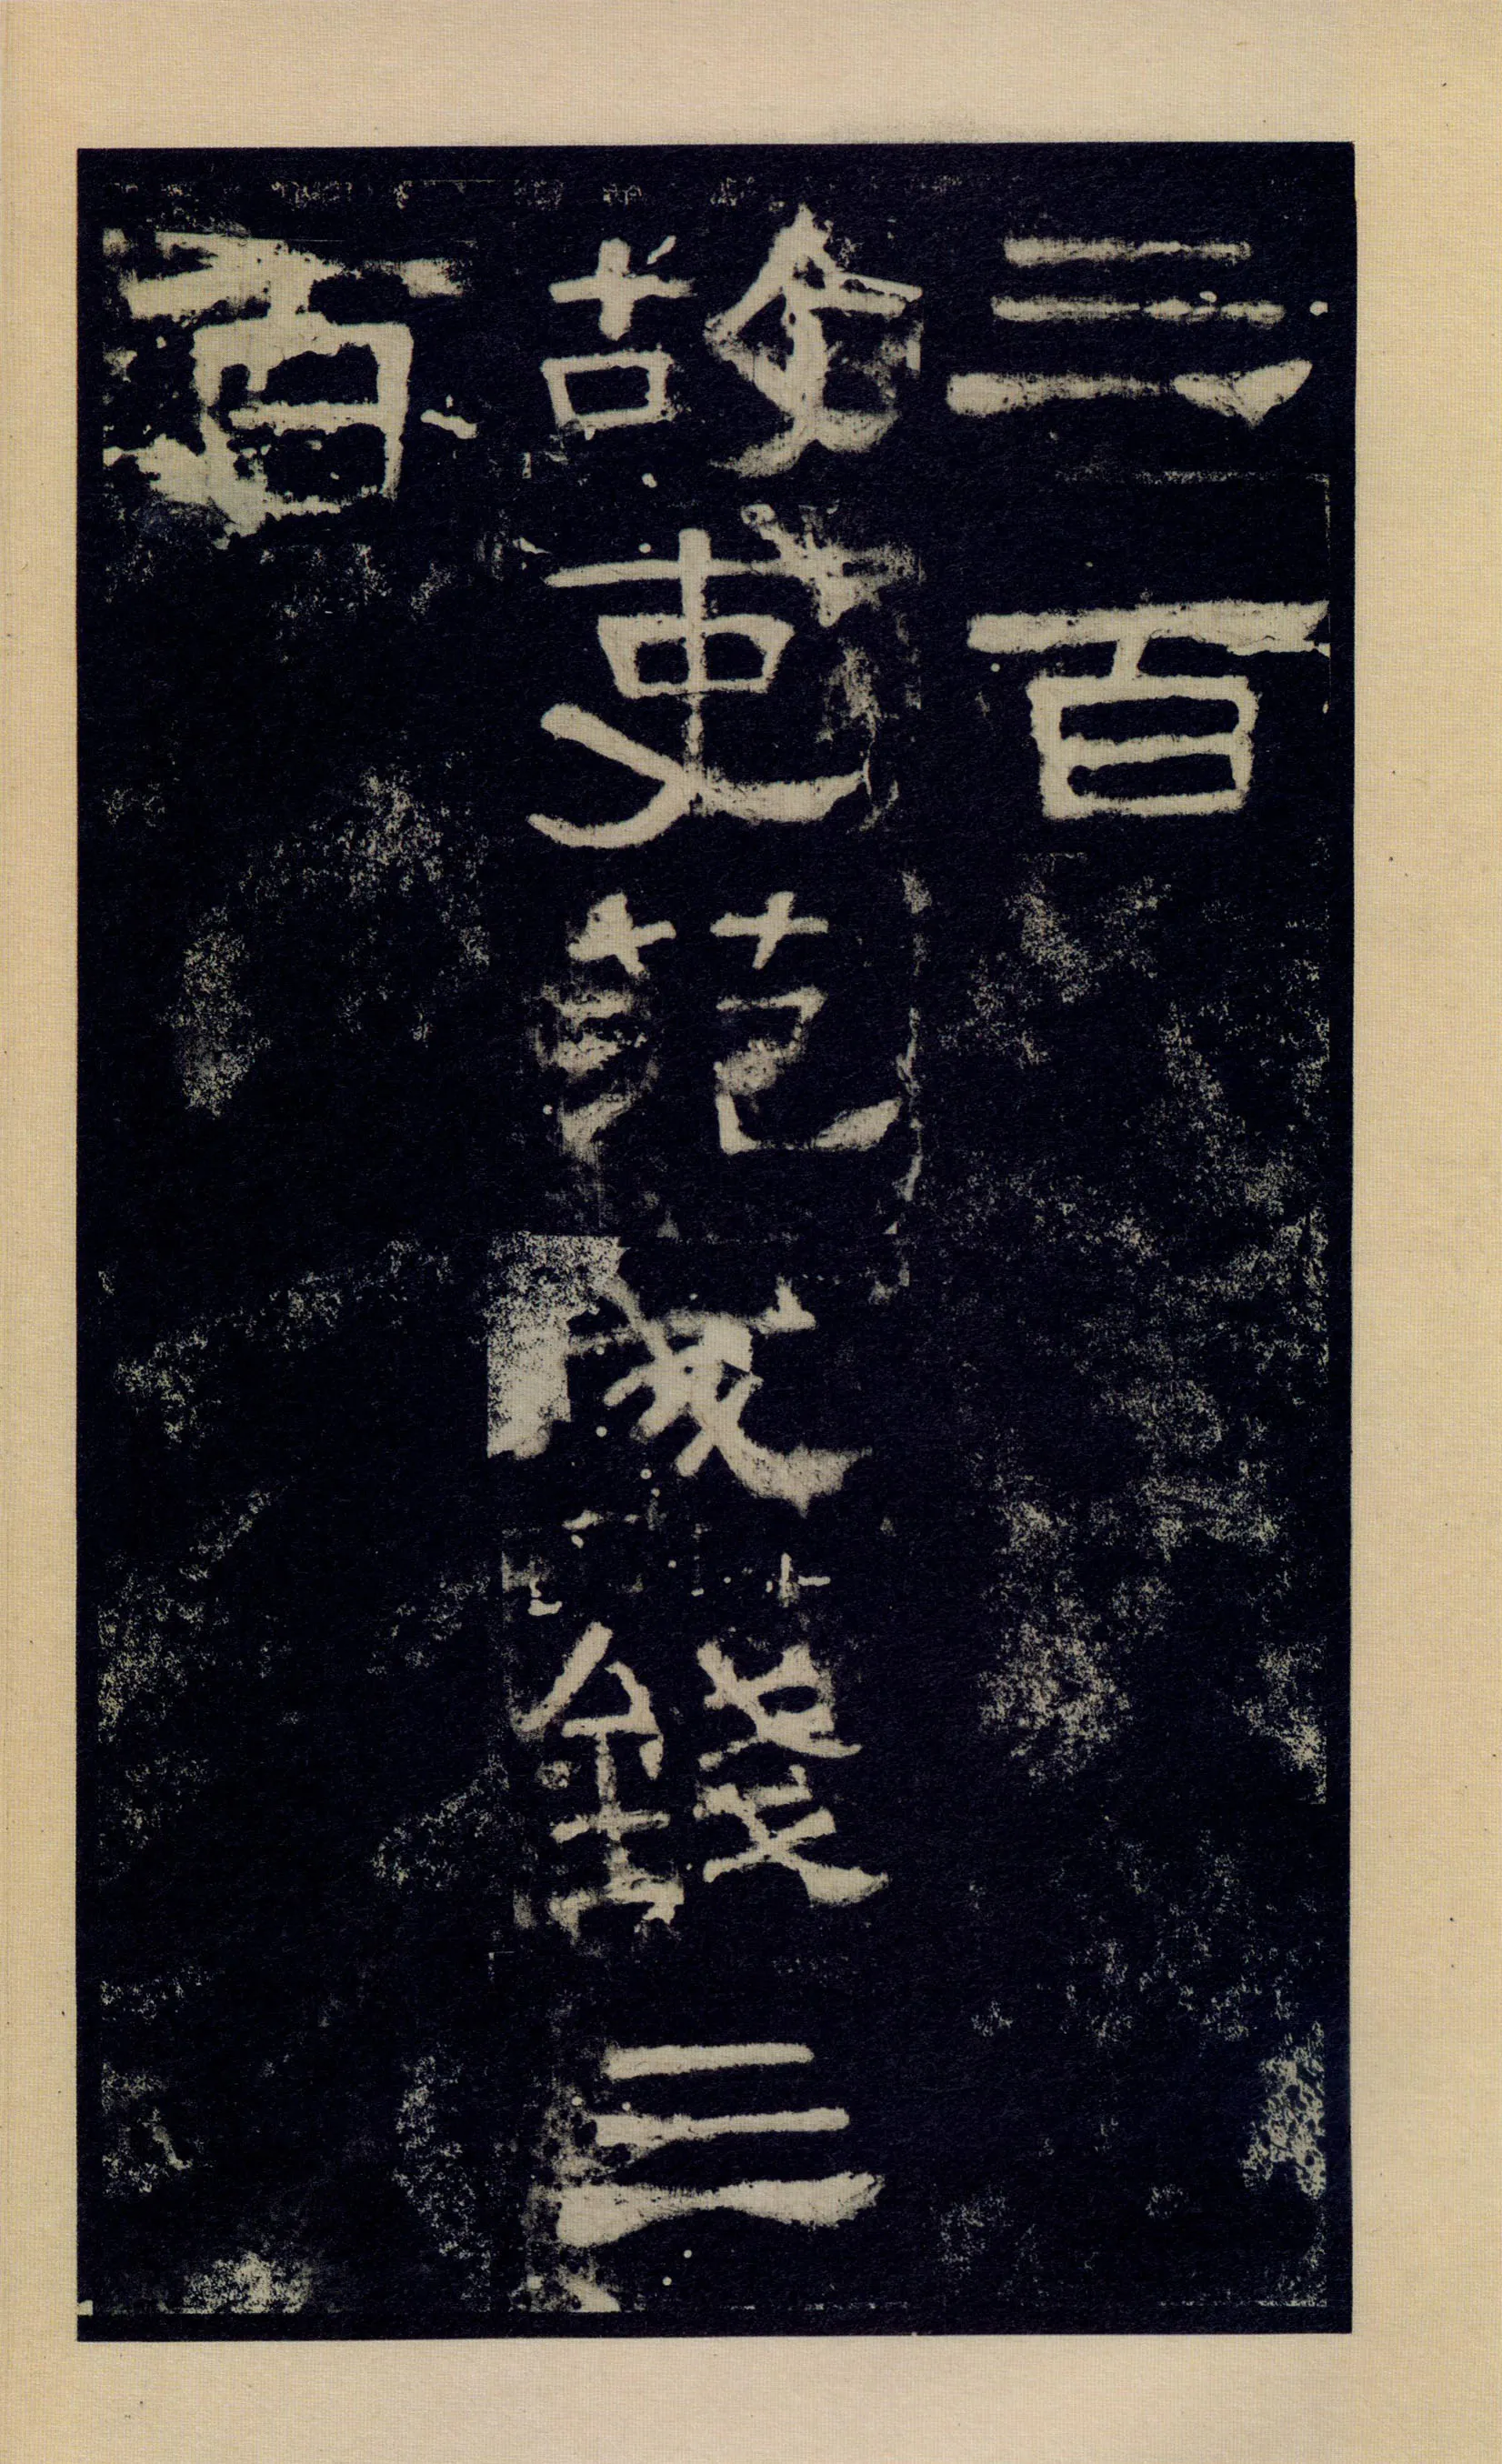 三百
故吏范成錢三
百